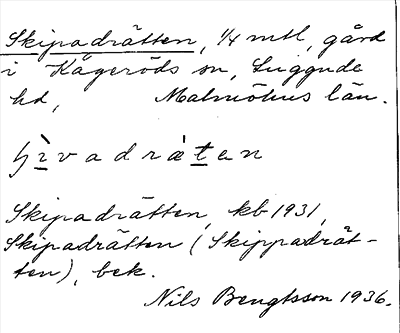 Skipadrätten, 1/4 mtl, gård
i Kågeröds sn, Luggude
hd, Malmöhus län.
ɧìvadræ̀tan
Skipadrätten, kb 1931,
Skipadrätten (Skippadrät-
ten), bek.
Nils Bengtsson 1936.